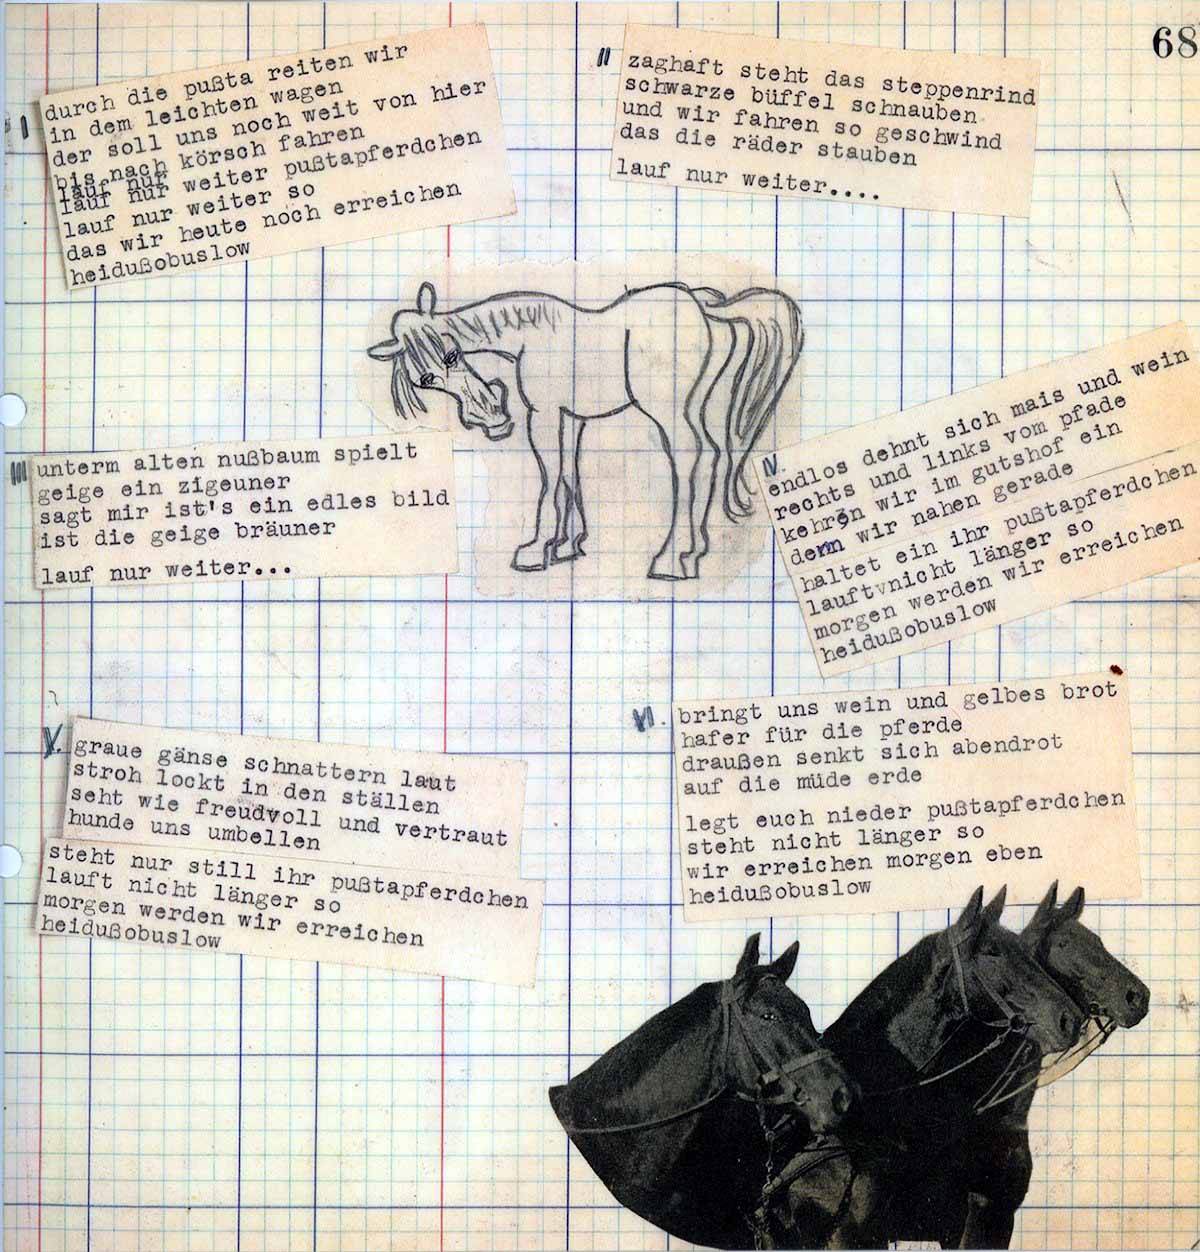 68
I
durch die pußta reiten wir
in dem leichten wagen
der soll uns noch weit von hier
bis nach körsch fahren
lauf nur
lauf nur weiter pußtapferdchen
lauf nur weiter so
das wir heute noch erreichen
heidußobuslow
II
zaghaft steht das steppenrind
schwarze büffel schnauben
und wir fahren so geschwind
das die räder stauben
lauf nur weiter....
III
unterm alten nußbaum spielt
geige ein zigeuner
sagt mir ist's ein edles bild
ist die geige bräuner
lauf nur weiter...
IV.
endlos dehnt sich mais und wein
rechts und links vom pfade
kehren wir im gutshof ein
denn wir nahen gerade
haltet ein ihr pußtapferdchen
lauft nicht länger so
morgen werden wir erreichen
heidußobuslow
V.
graue gänse schnattern laut
stroh lockt in den ställen
seht wie freudvoll und vertraut
hunde uns umbellen
steht nur still ihr pußtapferdchen
lauft nicht länger so
morgen werden wir erreichen
heidußobuslow
VI.
bringt uns wein und gelbes brot
hafer für die pferde
draußen senkt sich abendrot
auf die müde erde
legt euch nieder pußtapferdchen
steht nicht länger so
wir erreichen morgen eben
heidußobuslow